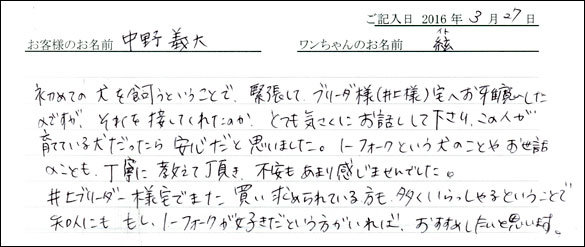 ご記入日 2016 年 3 月 27 日
お客様のお名前 中野 義大 ワンちゃんのお名前 絃 イト
初めての犬を飼うということで、緊張して ブリーダ様(井上様)宅へお邪魔したの
ですが、それを接してくれたのか、とても気さくにお話して下さり、この人が
育てている犬だったら安心だと思いました。ノーフォークという犬のことやお世話
のことも、丁寧に教えて頂き、不安もあまり感じませんでした。
井上ブリーダー様宅でまた買い求められている方も多くいらっしゃるということで
知人にも もし、ノーフォークが好きだという方がいれば、おすすめしたいと思います。